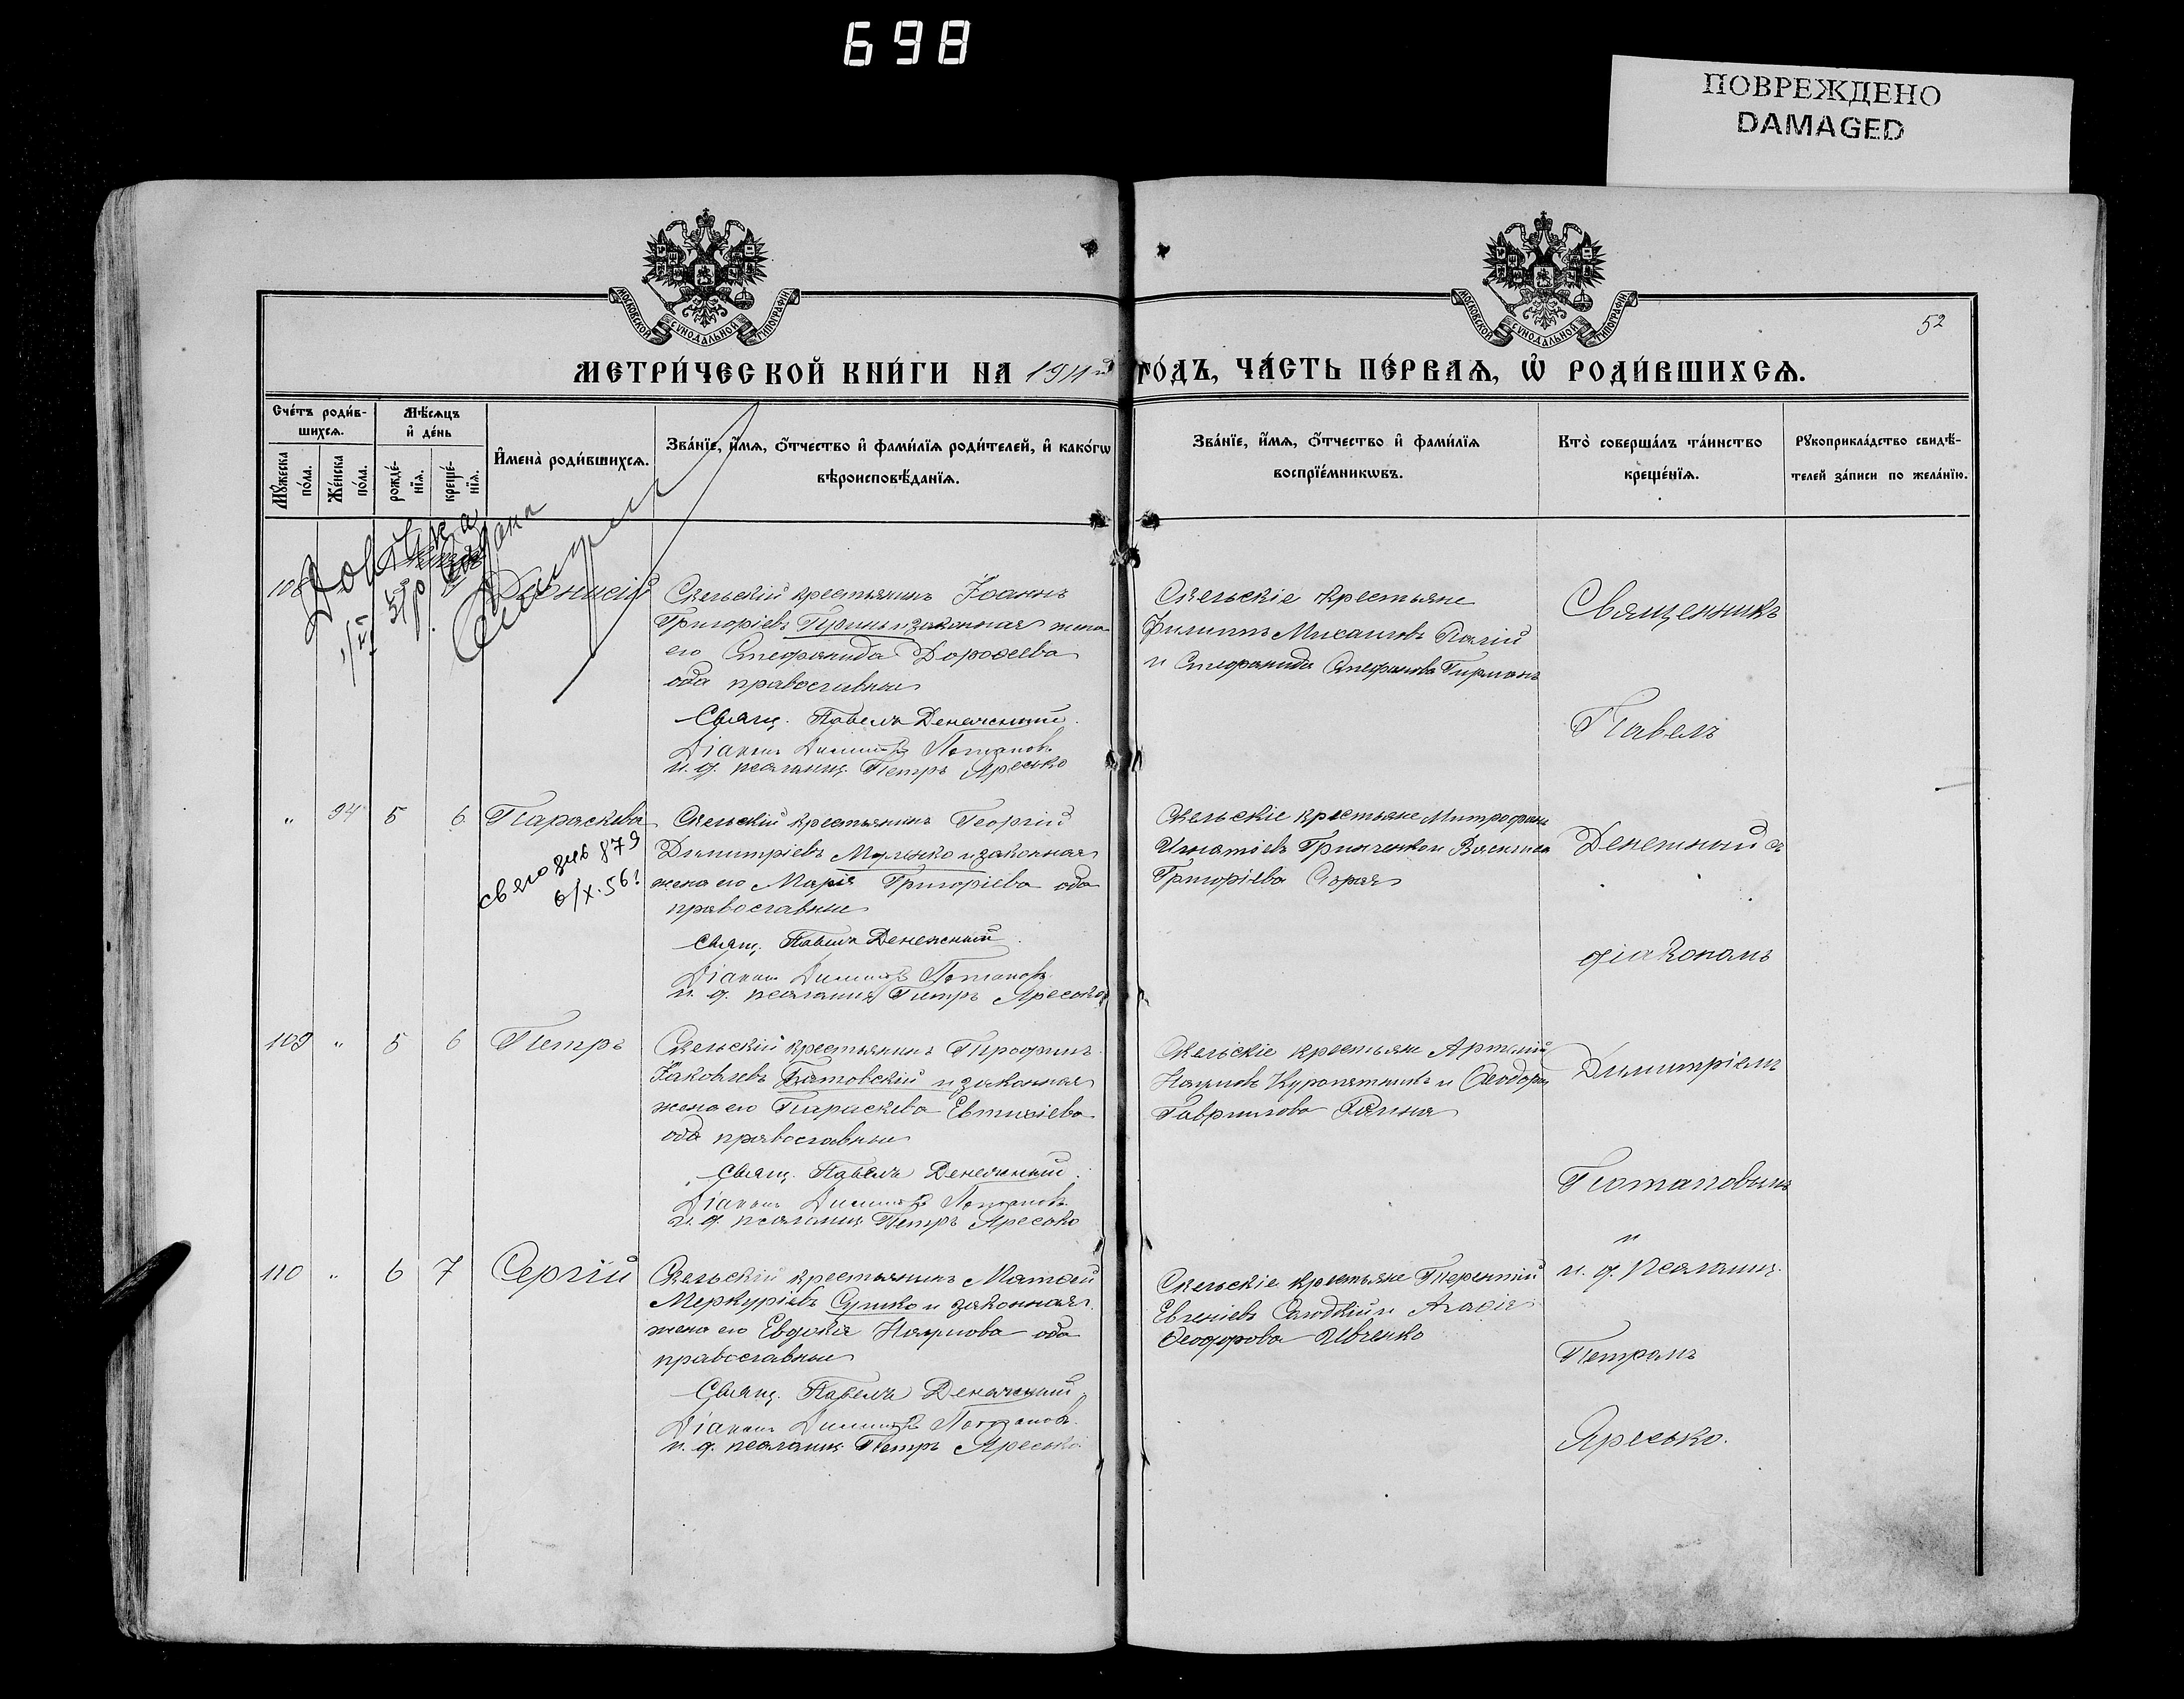 698
ПОВРЕЖДЕНО
DAMAGED
МОСКОВСКОЙ СѴНОДАЛЬНОЙ ТИПОГРАФІИ
МОСКОВСКОЙ СѴНОДАЛЬНОЙ ТИПОГРАФІИ
52
МЕТРИ́ЧЕСКОЙ КНИ́ГИ НА 1911й ГО́ДЪ, ЧА́СТЬ ПЕ́РВАѦ, Ѡ҆ РОДИ́ВШИХСѦ.
Сче́тъ роди́в-
шихсѧ.
Мꙋ́жеска по́ла.
Же́нска по́ла.
Мѣ́сѧцъ
и҆ де́нь
рожде́-
нїѧ.
креще́-
нїѧ.
И҆мена̀ роди́вшихсѧ.
Зва́нїе, и҆́мѧ, ѻ҆́тчество и҆ фами́лїѧ роди́телей, и҆ како́гѡ
вѣроисповѣ́данїѧ.
Зва́нїе, и҆́мѧ, ѻ҆́тчество и҆ фами́лїѧ
воспрїе́мникѡвъ.
Кто̀ соверша́лъ та́инство
креще́нїѧ.
Рꙋкоприкла́дство свидѣ́-
телей за́писи по жела́нїю.
108
Діонисій
Скельскій крестьянинъ Іоаннъ
Григоріевъ и законная жена
его Стефанида Дороѳеева
оба православные
Свящ. Павелъ Денежный.
Діаконъ Димитрій Потаповъ
и. д. псаломщ. Петръ Яресько
Скельскіе крестьяне
Филиппъ Михаиловъ Палій
и Стефанида Стефанова
Священникъ
Павелъ
" 94 5 6 Параскева
св яго знь 879
6/X.56!
Скельскій крестьянинъ Георгій
Димитріевъ Мулько и законная
жена его Марія Григоріева оба
православные
Свящ. Павелъ Денежный.
Діаконъ Димитрій Потаповъ
и. д. псаломщ. Петръ Яресько
Скельскіе крестьяне Митрофанъ
Игнатіевъ Гринченко и
Григоріева
Денежный съ
діакономъ
109 " 5 6 Петръ
Скельскій крестьянинъ Трофимъ
Іаковлевъ и законная
жена его Параскева Евтихіева
оба православные
Свящ. Павелъ Денежный.
Діаконъ Димитрій Потаповъ
и. д. псаломщ. Петръ Яресько
Скельскіе крестьяне Артемій
Наумовъ Куропятникъ и Ѳеодора
Гавриилова
Димитріемъ
Потаповымъ
и
110 " 6 7 Сергій
Скельскій крестьянинъ Матѳей
Меркуріевъ Сушко и законная
жена его Евдокія Наумова оба
православные
Свящ. Павелъ Денежный.
Діаконъ Димитрій Потаповъ
и. д. псаломщ. Петръ Яресько
Скельскіе крестьяне Терентій
Евгеніевъ и Агаѳія
Ѳеодорова Ивченко
и. д. псаломщ.
Петромъ
Яресько.